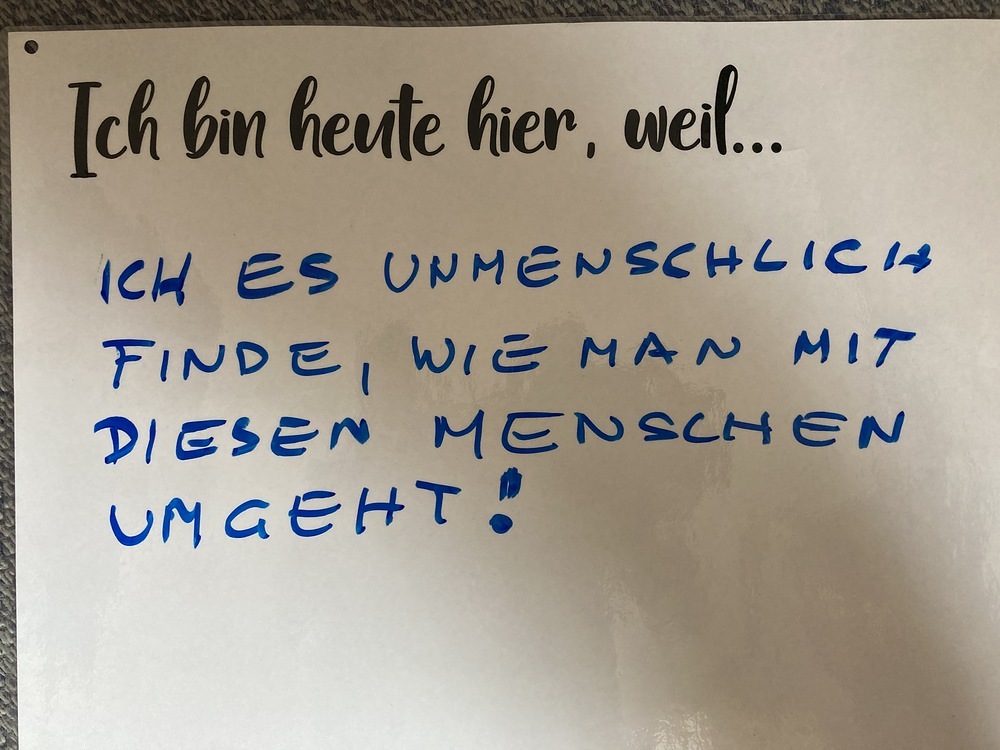 Ich bin heute hier, weil...
ICH ES UNMENSCHLICH
FINDE, WIE MAN MIT
DIESEN MENSCHEN
UMGEHT!